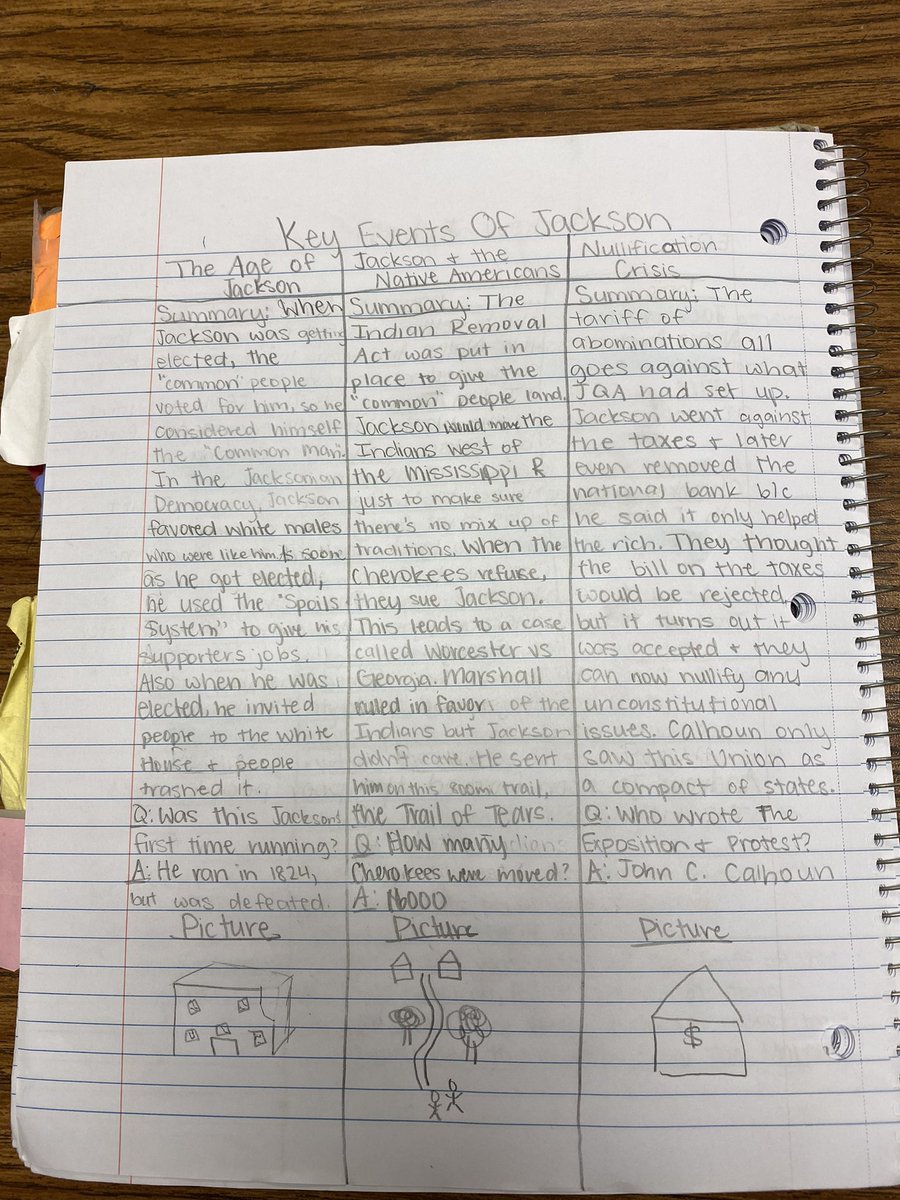 Key Events Of Jackson
The Age of
Jackson
Summary: When
Jackson was getting
elected, the
"common" people
voted for him, so he
considered himself
the "Common man".
In the Jacksonian
Democracy, Jackson
favored white males
who were like him. As soon
as he got elected,
he used the "Spoils
System" to give his
supporters jobs.
Also when he was
elected, he invited
people to the white
House & people
trashed it.
Q: Was this Jacksons
first time running?
A: He ran in 1824,
but was defeated.
Picture
Jackson & the
Native Americans
Summary: The
Indian Removal
Act was put in
place to give the
"common" people land.
Jackson would move the
Indians west of
the Mississippi R
just to make sure
there's no mix up of
traditions. When the
Cherokees refuse,
they sue Jackson.
This leads to a case
called Worcester vs
Georgia. Marshall
ruled in favor of the
Indians but Jackson
didn't care. He sent
him on this 800mi trail,
the Trail of Tears.
Q: How many
Cherokees were moved?
A: 16000
Picture
Nullification
Crisis
Summary: The
tariff of
abominations all
goes against what
JQA had set up.
Jackson went against
the taxes & later
even removed the
national bank b/c
he said it only helped
the rich. They thought
the bill on the taxes
would be rejected,
but it turns out it
was accepted & they
can now nullify any
unconstitutional
issues. Calhoun only
saw this Union as
a compact of states.
Q: Who wrote The
Exposition & Protest?
A: John C. Calhoun
Picture
$